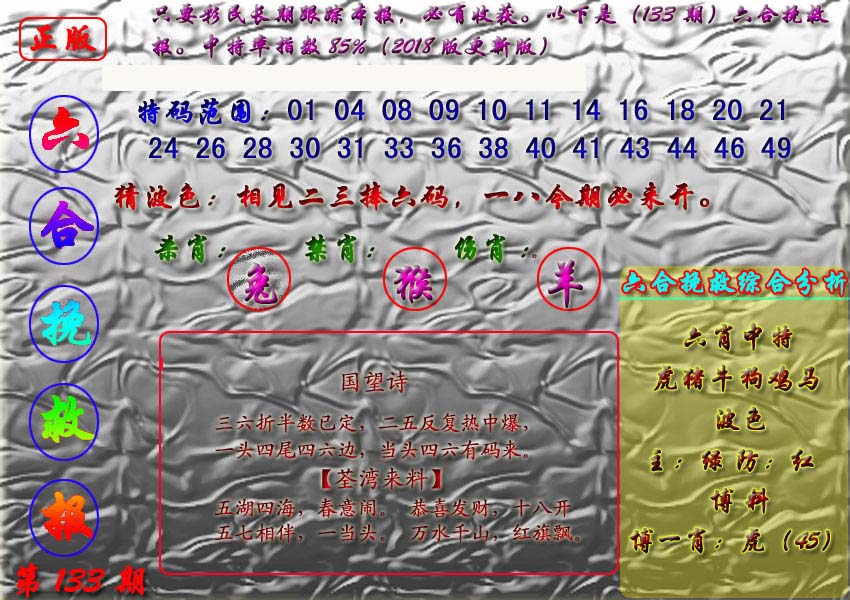 正版
只要彩民长期跟踪本报，必有收获。以下是（133 期）六合挽救
报。中特率指数 85%（2018 版更新版）
六合挽救报
第 133 期
特码范围：01 04 08 09 10 11 14 16 18 20 21
24 26 28 30 31 33 36 38 40 41 43 44 46 49
猜波色：相见二三捧六码，一八今期必来开。
杀肖：兔 禁肖：猴 伤肖：羊
国望诗
三六折半数已定，二五反复热中爆，
一头四尾四六边，当头四六有码来。
【荃湾来料】
五湖四海，春意闹。 恭喜发财，十八开
五七相伴，一当头。 万水千山，红旗飘。
六合挽救综合分析
六肖中特
虎猪牛狗鸡马
波色
主：绿 防：红
博料
博一肖：虎（45）